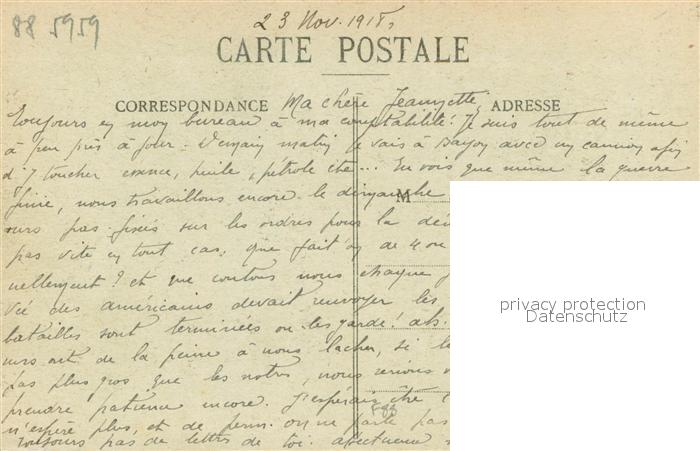 88 5959
23 Nov. 1918,
CARTE POSTALE
CORRESPONDANCE Ma chère Jeannette, ADRESSE
Toujours en mon bureau à ma comptabilité. Je suis tout de même
à peu près à jour. Demain matin je vais à Bayon avec un camion afin
d'y toucher essence, huile, pétrole etc... Tu vois que même la guerre
finie, nous travaillons encore le dimanche M
ours pas fixés sur les ordres pour la
pas vite en tout cas; que fait on de 4 ou
nellement? et que coutons nous chaque
vée des américains devait renvoyer les
batailles sont terminées on les garde! als.
urs ont de la peine à nous lacher, si
pas plus gros que les notres, nous serions
prendre patience encore. J'espérais être
n'espère plus, et de perm. on ne parle pas
Toujours pas de lettre de toi. affectueux
privacy protection
Datenschutz